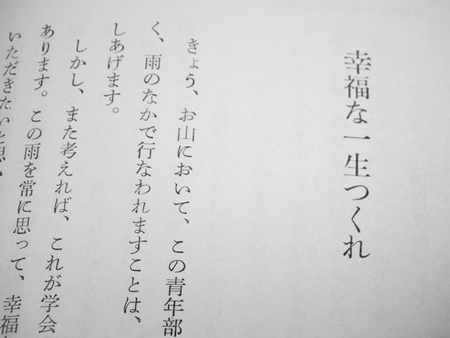 幸福な一生つくれ
きょう、お山において、この青年部
く、雨のなかで行なわれますことは、
しあげます。
しかし、また考えれば、これが学会
あります。この雨を常に思って、幸福
いただきたいと思